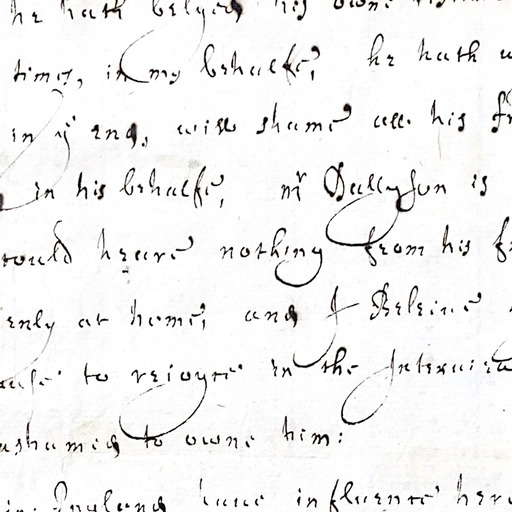 he hath belyed his owne
times, in my behalfe; he hath
in yͤ end, will shame all his fr
in his behalfe; mʳ Dallyson is
would heare nothing from his fr
enly at home; and I Beleive
ause to rejoyce in the Interview
ashamed to owne him:
in England have influence here